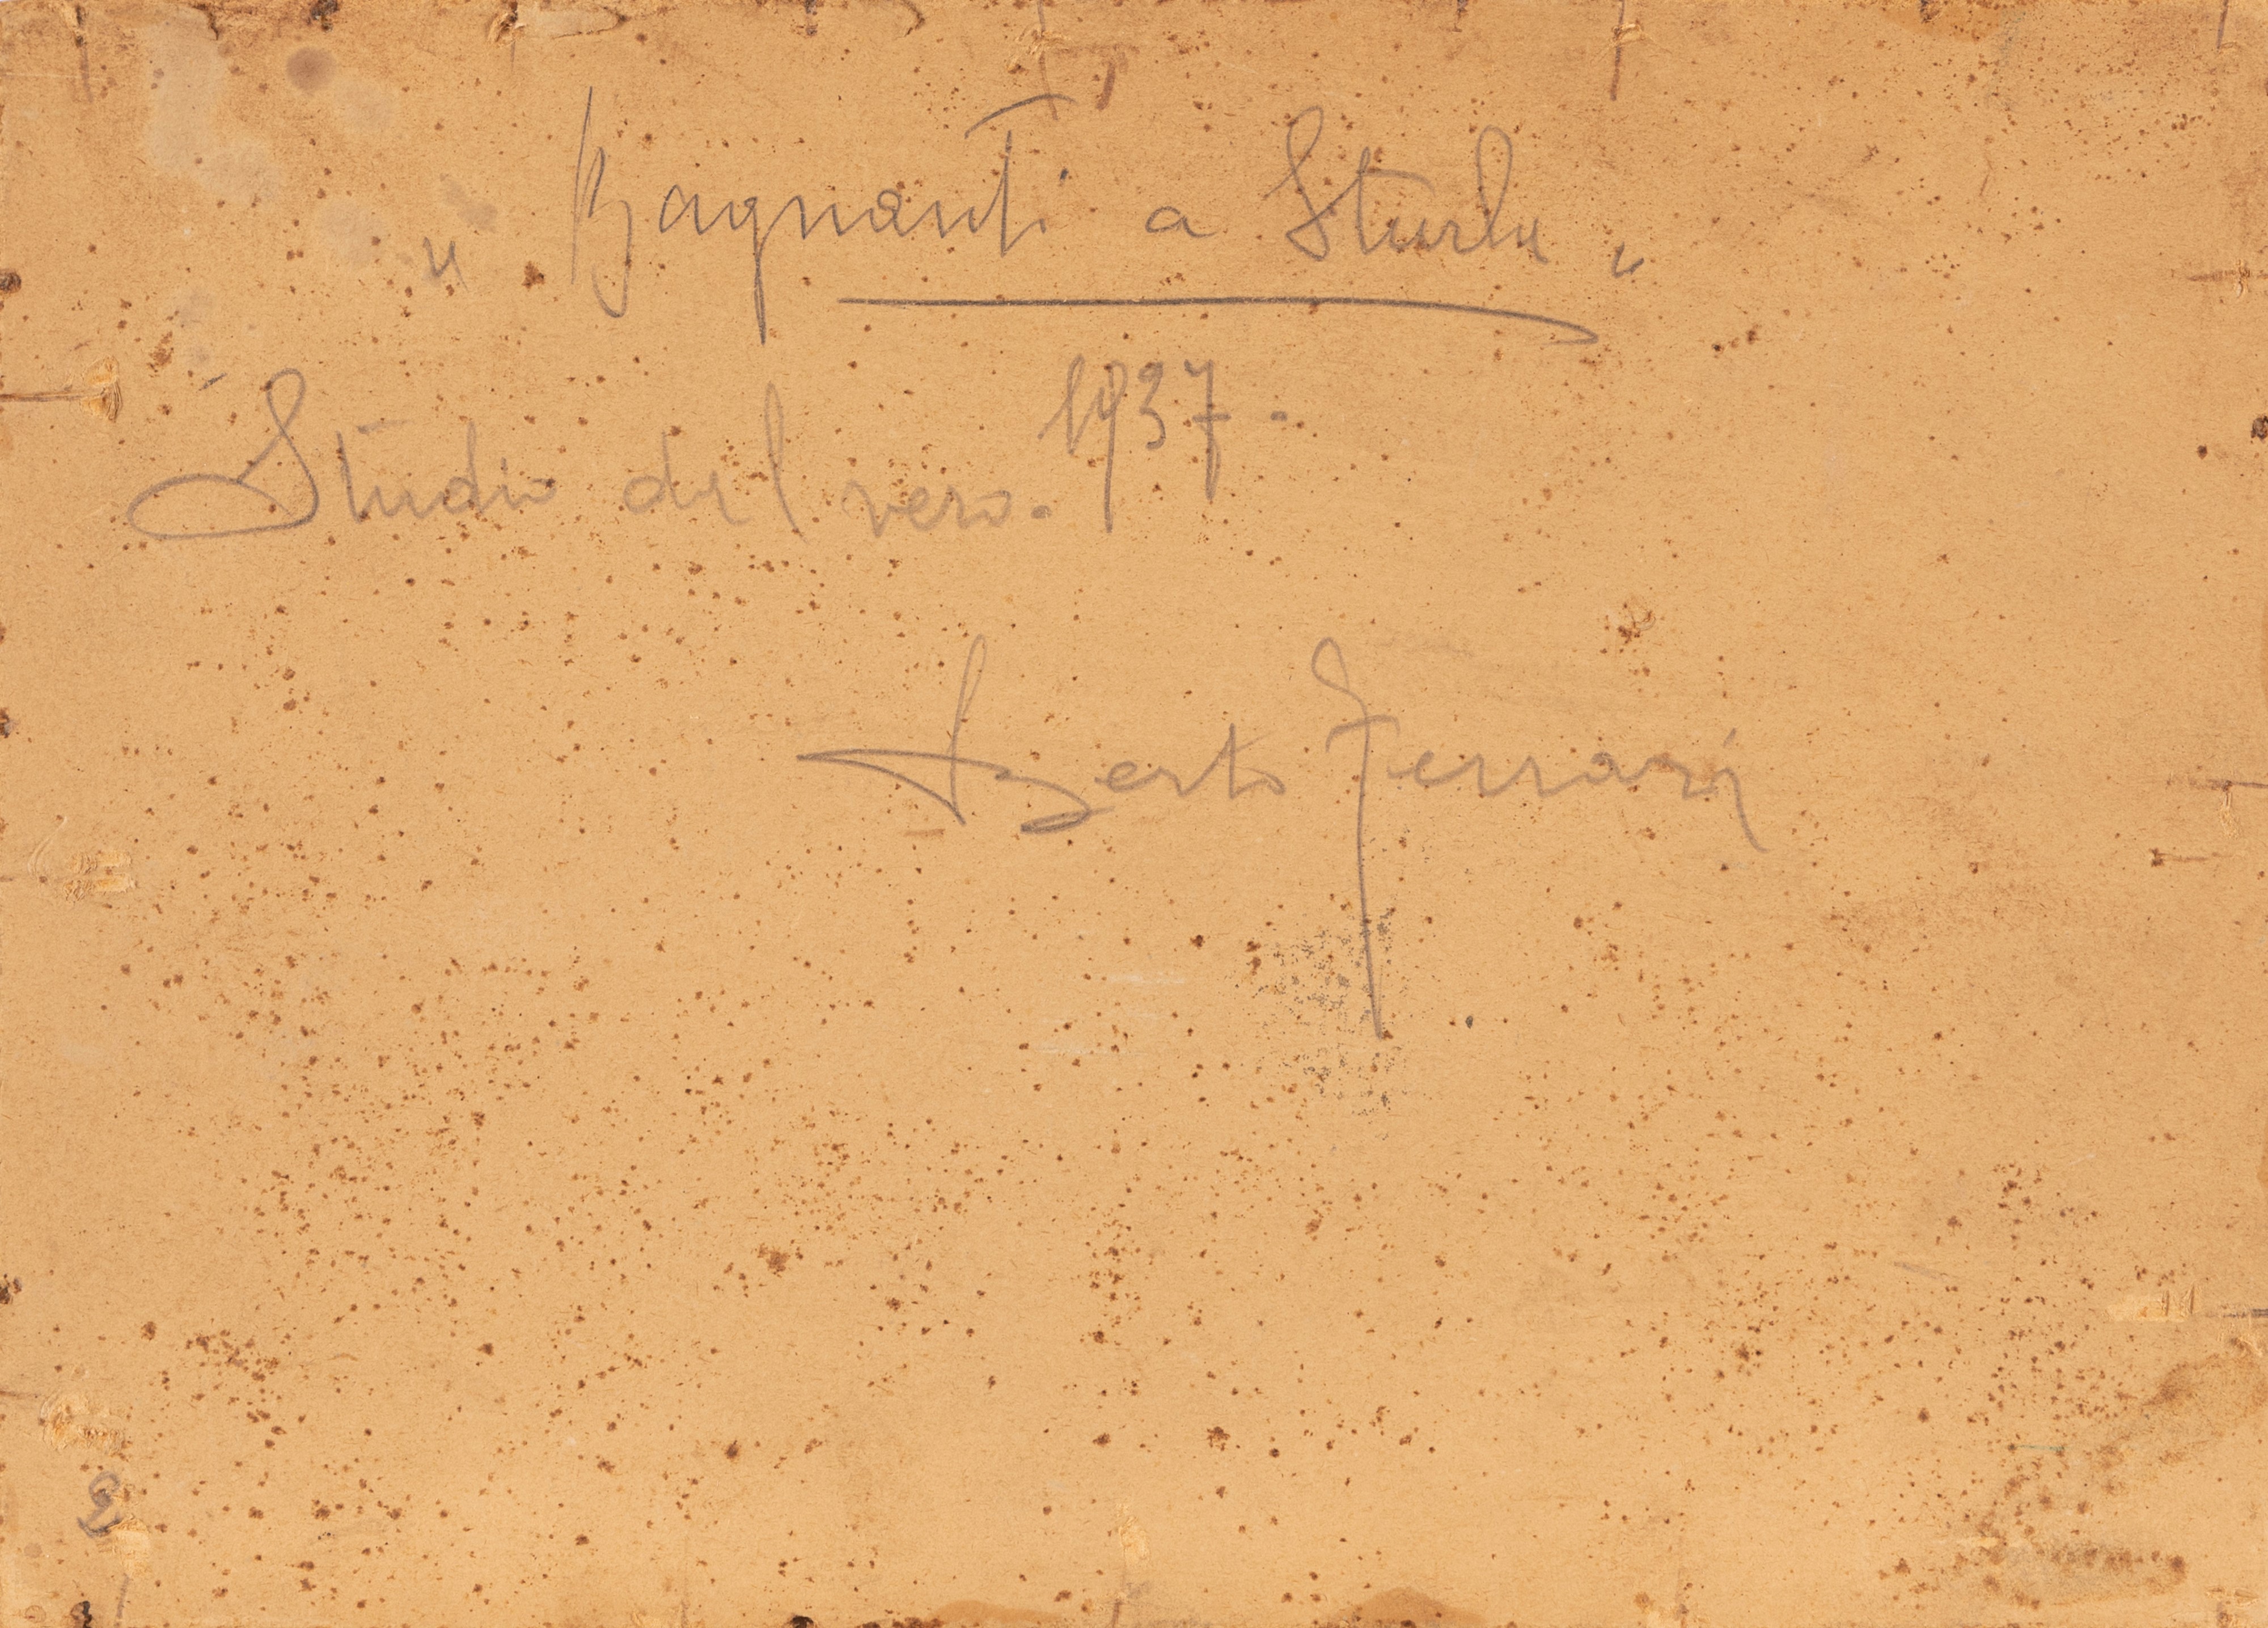 " Bagnanti a Sturla "
1937.
Studio del vero.
Berto Ferrari